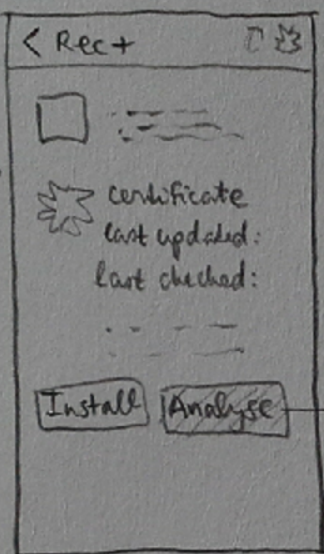 < Rec+
certificate
last updated:
last checked:
Install Analyse